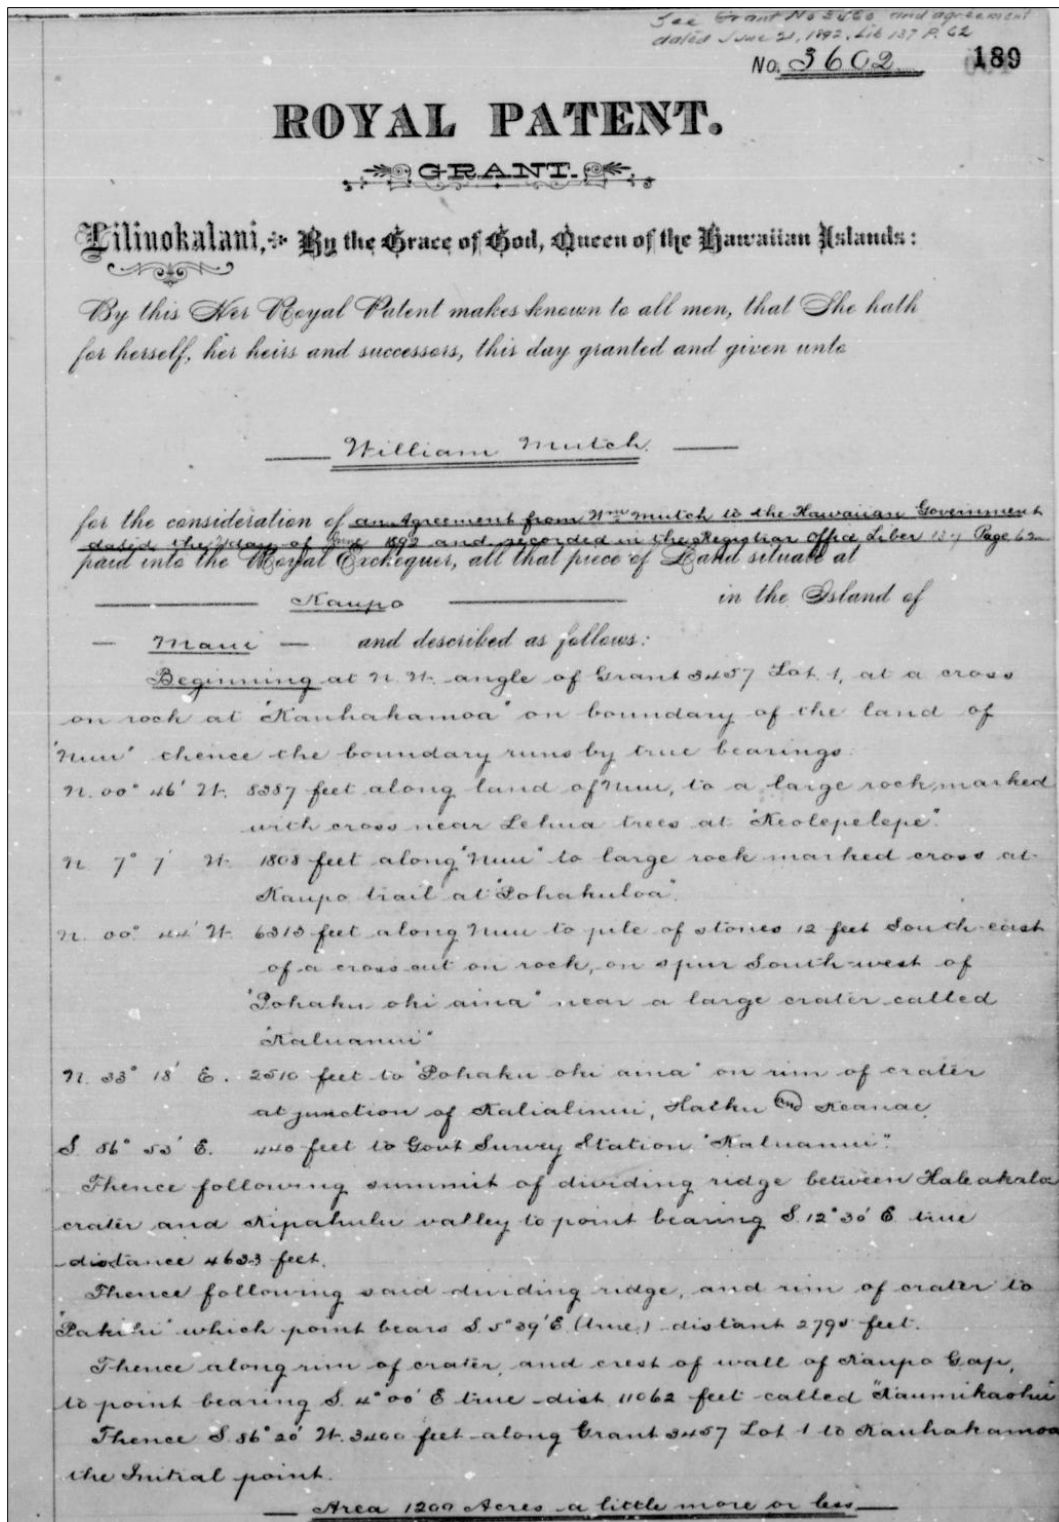 See Grant No 3460 and agreement
dated June 21, 1892, Lib 137 P. 62
No. 3602 189
ROYAL PATENT.
GRANT.
Liliuokalani, By the Grace of God, Queen of the Hawaiian Islands:
By this Her Royal Patent makes known to all men, that She hath
for herself, her heirs and successors, this day granted and given unto
William Mutch.
for the consideration of an Agreement from Wm Mutch to the Hawaiian Government
dated the day of June 1892 and recorded in the Registrar Office Liber 137 Page 62
paid into the Royal Exchequer, all that piece of Land situate at
Kaupo in the Island of
Maui and described as follows:
Beginning at N.W. angle of Grant 3457 Lot 1, at a cross
on rock at "Kauhakamoa" on boundary of the land of
"Nuu" thence the boundary runs by true bearings.
N. 00° 46' W. 8387 feet along land of Nuu, to a large rock, marked
with cross near Lehua trees at "Keolepelepe".
N 7° 7' W. 1808 feet along "Nuu" to large rock marked cross at
Kaupo trail at "Pohakuloa".
N. 00° 44' W. 6313 feet along Nuu to pile of stones 12 feet South-east
of a cross cut on rock, on spur South-west of
"Pohaku oki aina" near a large crater called
"Kaluanui"
N. 33° 18' E. 2510 feet to "Pohaku oki aina" on rim of crater
at junction of Kalialinui, Haiku and Keanae.
S. 86° 53' E. 440 feet to Govt Survey Station "Kaluanui".
Thence following summit of dividing ridge between Haleakala
crater and Kipahulu valley to point bearing S. 12° 30' E. true
distance 4633 feet.
Thence following said dividing ridge, and rim of crater to
"Pakihi" which point bears S. 5° 39' E. (true) distant 2795 feet.
Thence along rim of crater, and crest of wall of Kaupo Gap,
to point bearing S. 4° 00' E true dist. 11062 feet called "Kaumikaohu"
Thence S. 86° 20' W. 3400 feet along Grant 3457 Lot 1 to Kauhakamoa
the Initial point.
Area 1200 Acres a little more or less